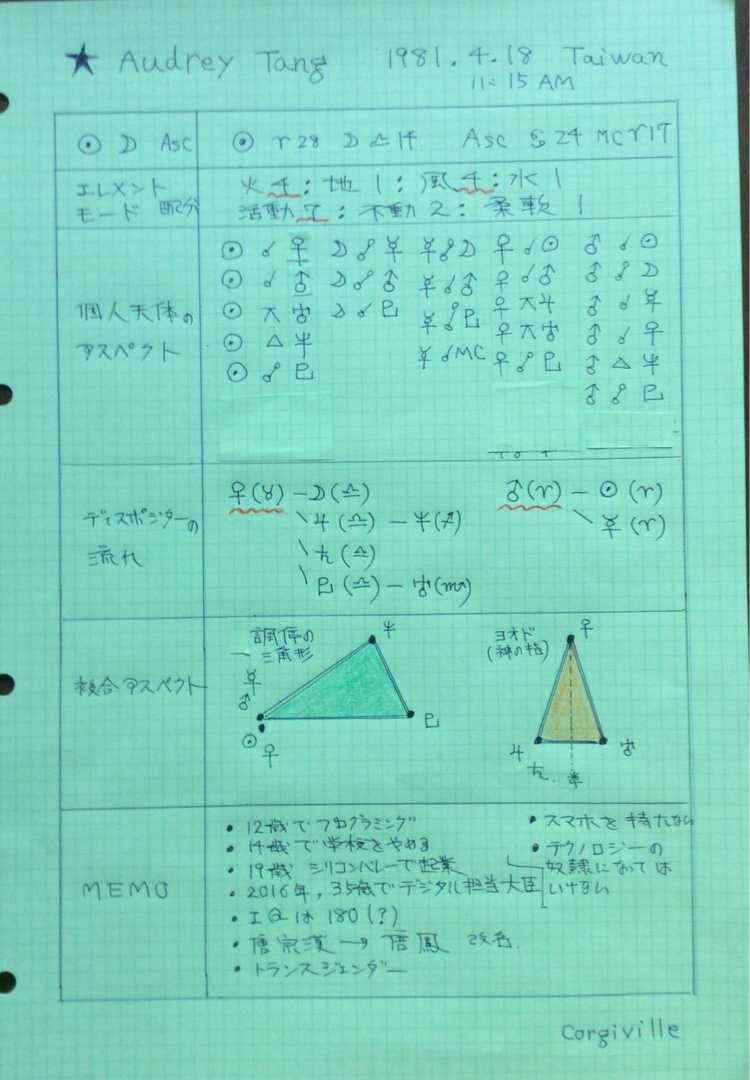 ★ Audrey Tang 1981.4.18 Taiwan
11:15 AM
☉ ☽ Asc
☉ ♈28 ☽ ♎14 Asc ♋24 MC♈17
エレメント
モード 配分
火4:地1:風4:水1
活動7:不動2:柔軟1
個人天体の
アスペクト
☉ ☌ ♀ ☽ ☍ ☿ ☿ ☍ ☽ ♀ ☌ ☉ ♂ ☌ ☉
☉ ☌ ♂ ☽ ☍ ♂ ☿ ☌ ♂ ♀ ☌ ♂ ♂ ☍ ☽
☉ ⚻ ♅ ☽ ☌ ♇ ☿ ☍ ♇ ♀ ⚻ ♃ ♂ ☌ ☿
☉ △ ♆ ☿ ☌ MC ♀ ⚻ ♅ ♂ ☌ ♀
☉ ☍ ♇ ♀ ☍ ♇ ♂ △ ♆
♂ ☍ ♇
ディスポジターの
流れ
♀(♉) – ☽(♎)
\ ♃(♎) – ♆(♐)
\ ♄(♎)
\ ♇(♎) – ♅(♏)
♂(♈) – ☉(♈)
\ ☿(♈)
複合アスペクト
調停の
三角形
♆
☿
♂
☉
♀
♇
ヨオド
(神の指)
♀
♃
♄
♅
MEMO
• 12歳でプログラミング
• 14歳で学校をやめる
• 19歳 シリコンバレーで起業
• 2016年,35歳でデジタル担当大臣
• IQは180(?)
• 唐宗漢→唐鳳 改名.
• トランスジェンダー
• スマホを持たない
• テクノロジーの
奴隷になっては
いけない
Corgiville